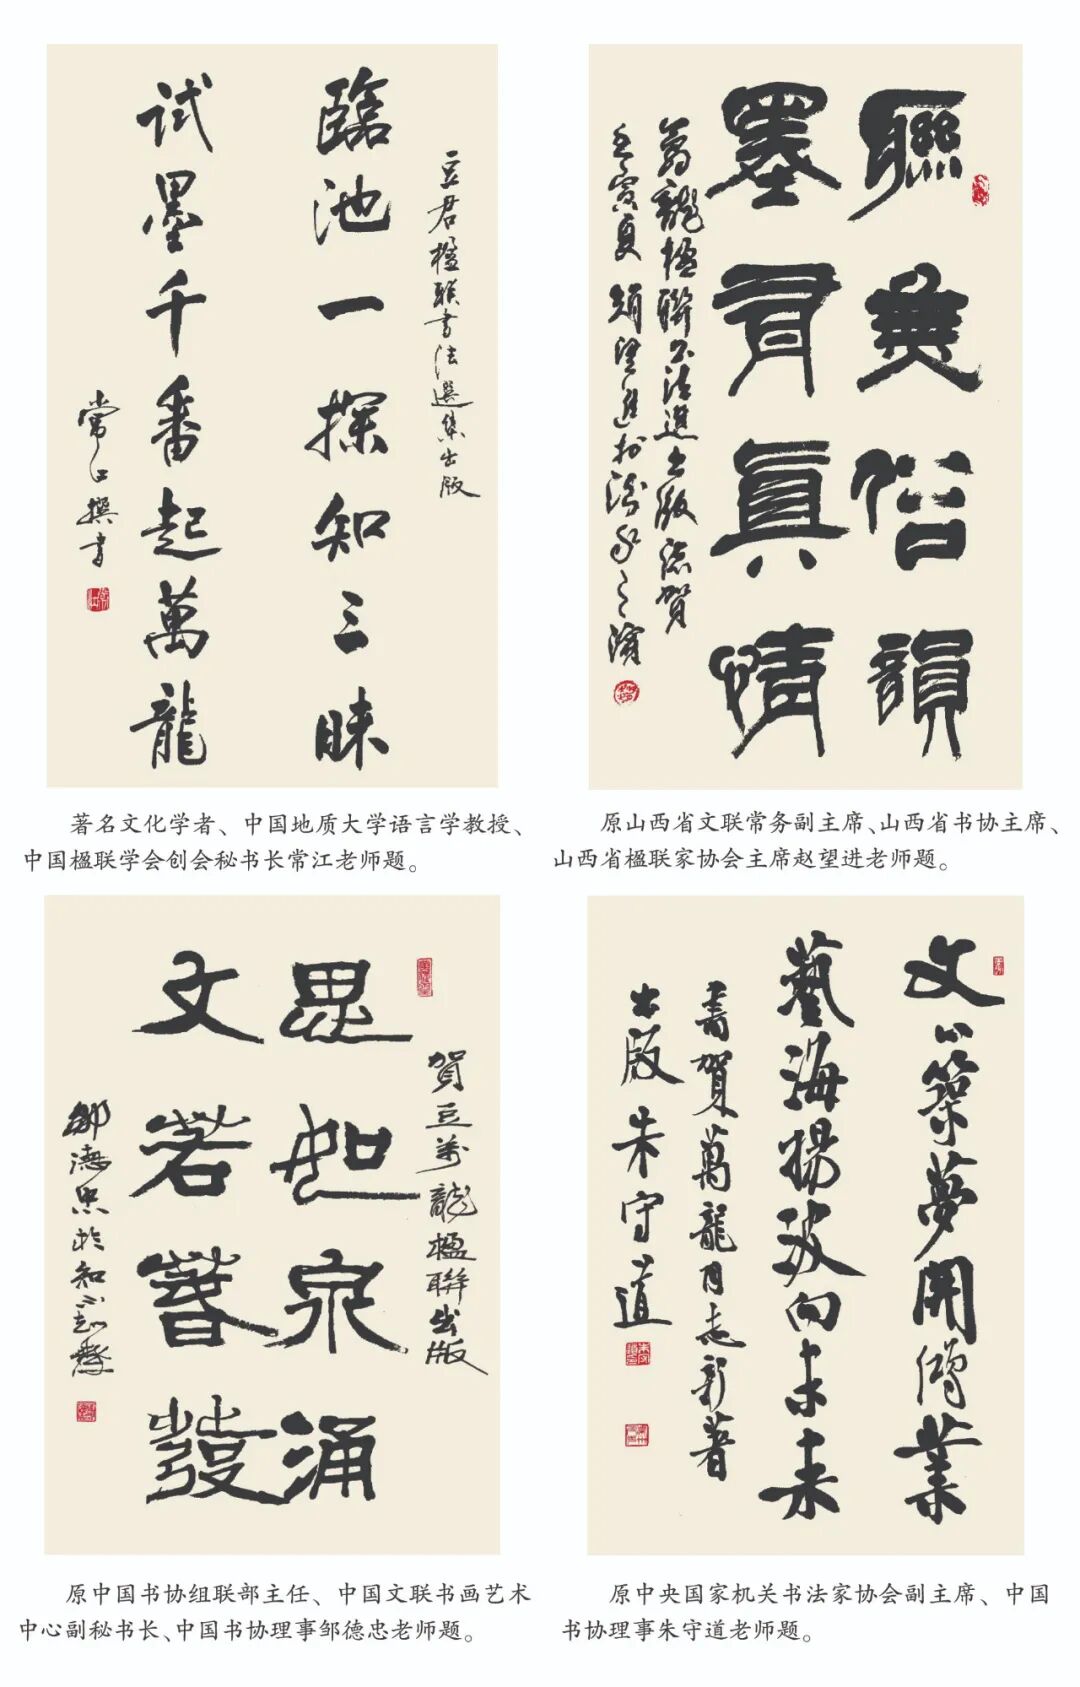 豆君楹联书法選集出版
臨池一探知三昧
试墨千番起萬龍
常江撰书
著名文化学者、中国地质大学语言学教授、
中国楹联学会创会秘书长常江老师题。
聯無俗韻
墨有真情
萬龍楹聯书法出版誌賀
壬寅夏 趙望進於汾水之濱
原山西省文联常务副主席、山西省书协主席、
山西省楹联家协会主席赵望进老师题。
賀豆萬龍楹聯出版
思如泉涌
文若春發
鄒德忠於知不
原中国书协组联部主任、中国文联书画艺术
中心副秘书长、中国书协理事邹德忠老师题。
文心築夢開偉業
藝海揚波向未来
書賀萬龍同志新著
出版 朱守道
原中央国家机关书法家协会副主席、中国
书协理事朱守道老师题。